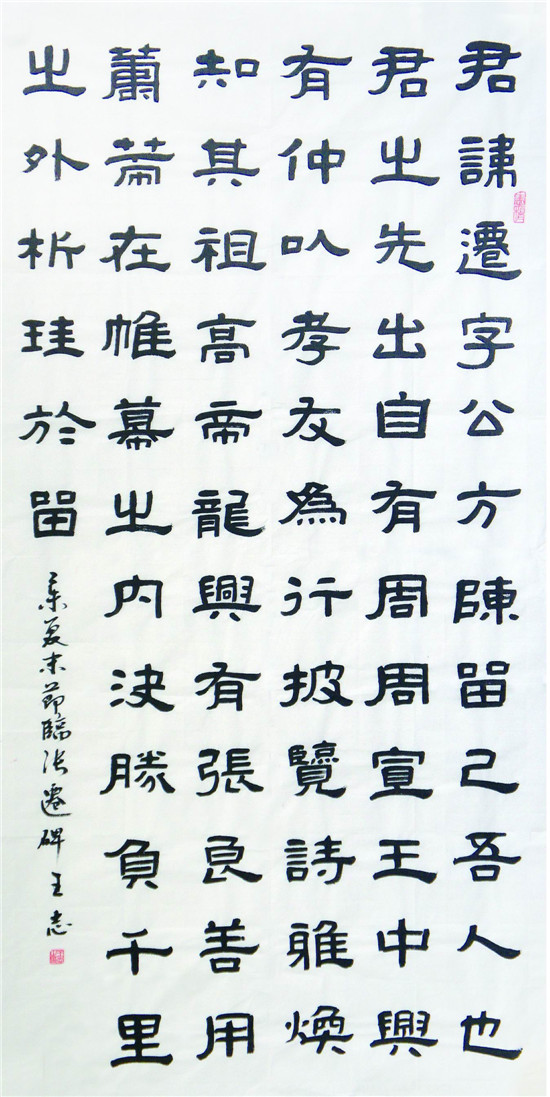 君諱遷字公方陳留己吾人也
君之先出自有周周宣王中興
有仲以孝友為行披覽詩雅煥
知其祖高帝龍興有張良善用
籌策在帷幕之内決勝負千里
之外析珪於留
夏末節臨张遷碑王志